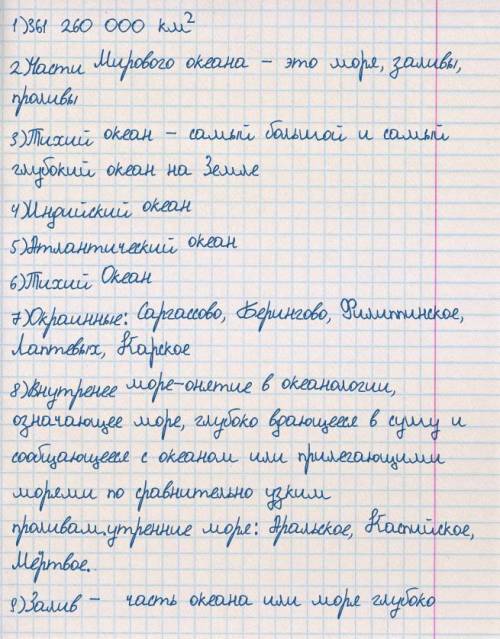 1)361 260 000 км²
2)Части Мирового океана - это моря, заливы,
проливы
3)Тихий океан - самый большой и самый
глубокий океан на Земле
4)Индийский океан
5)Атлантический океан
6)Тихий Океан
7)Окраинные: Саргассово, Берингово, Филиппинское,
Лаптевых, Карское
8)Внутренее море-онятие в океанологии,
означающее море, глубоко вдающееся в сушу и
сообщающееся с океаном или прилегающими
морями по сравнительно узким
проливам.утренние море: Аральское, Каспийское,
Мёртвое.
9)Залив - часть океана или моря глубоко